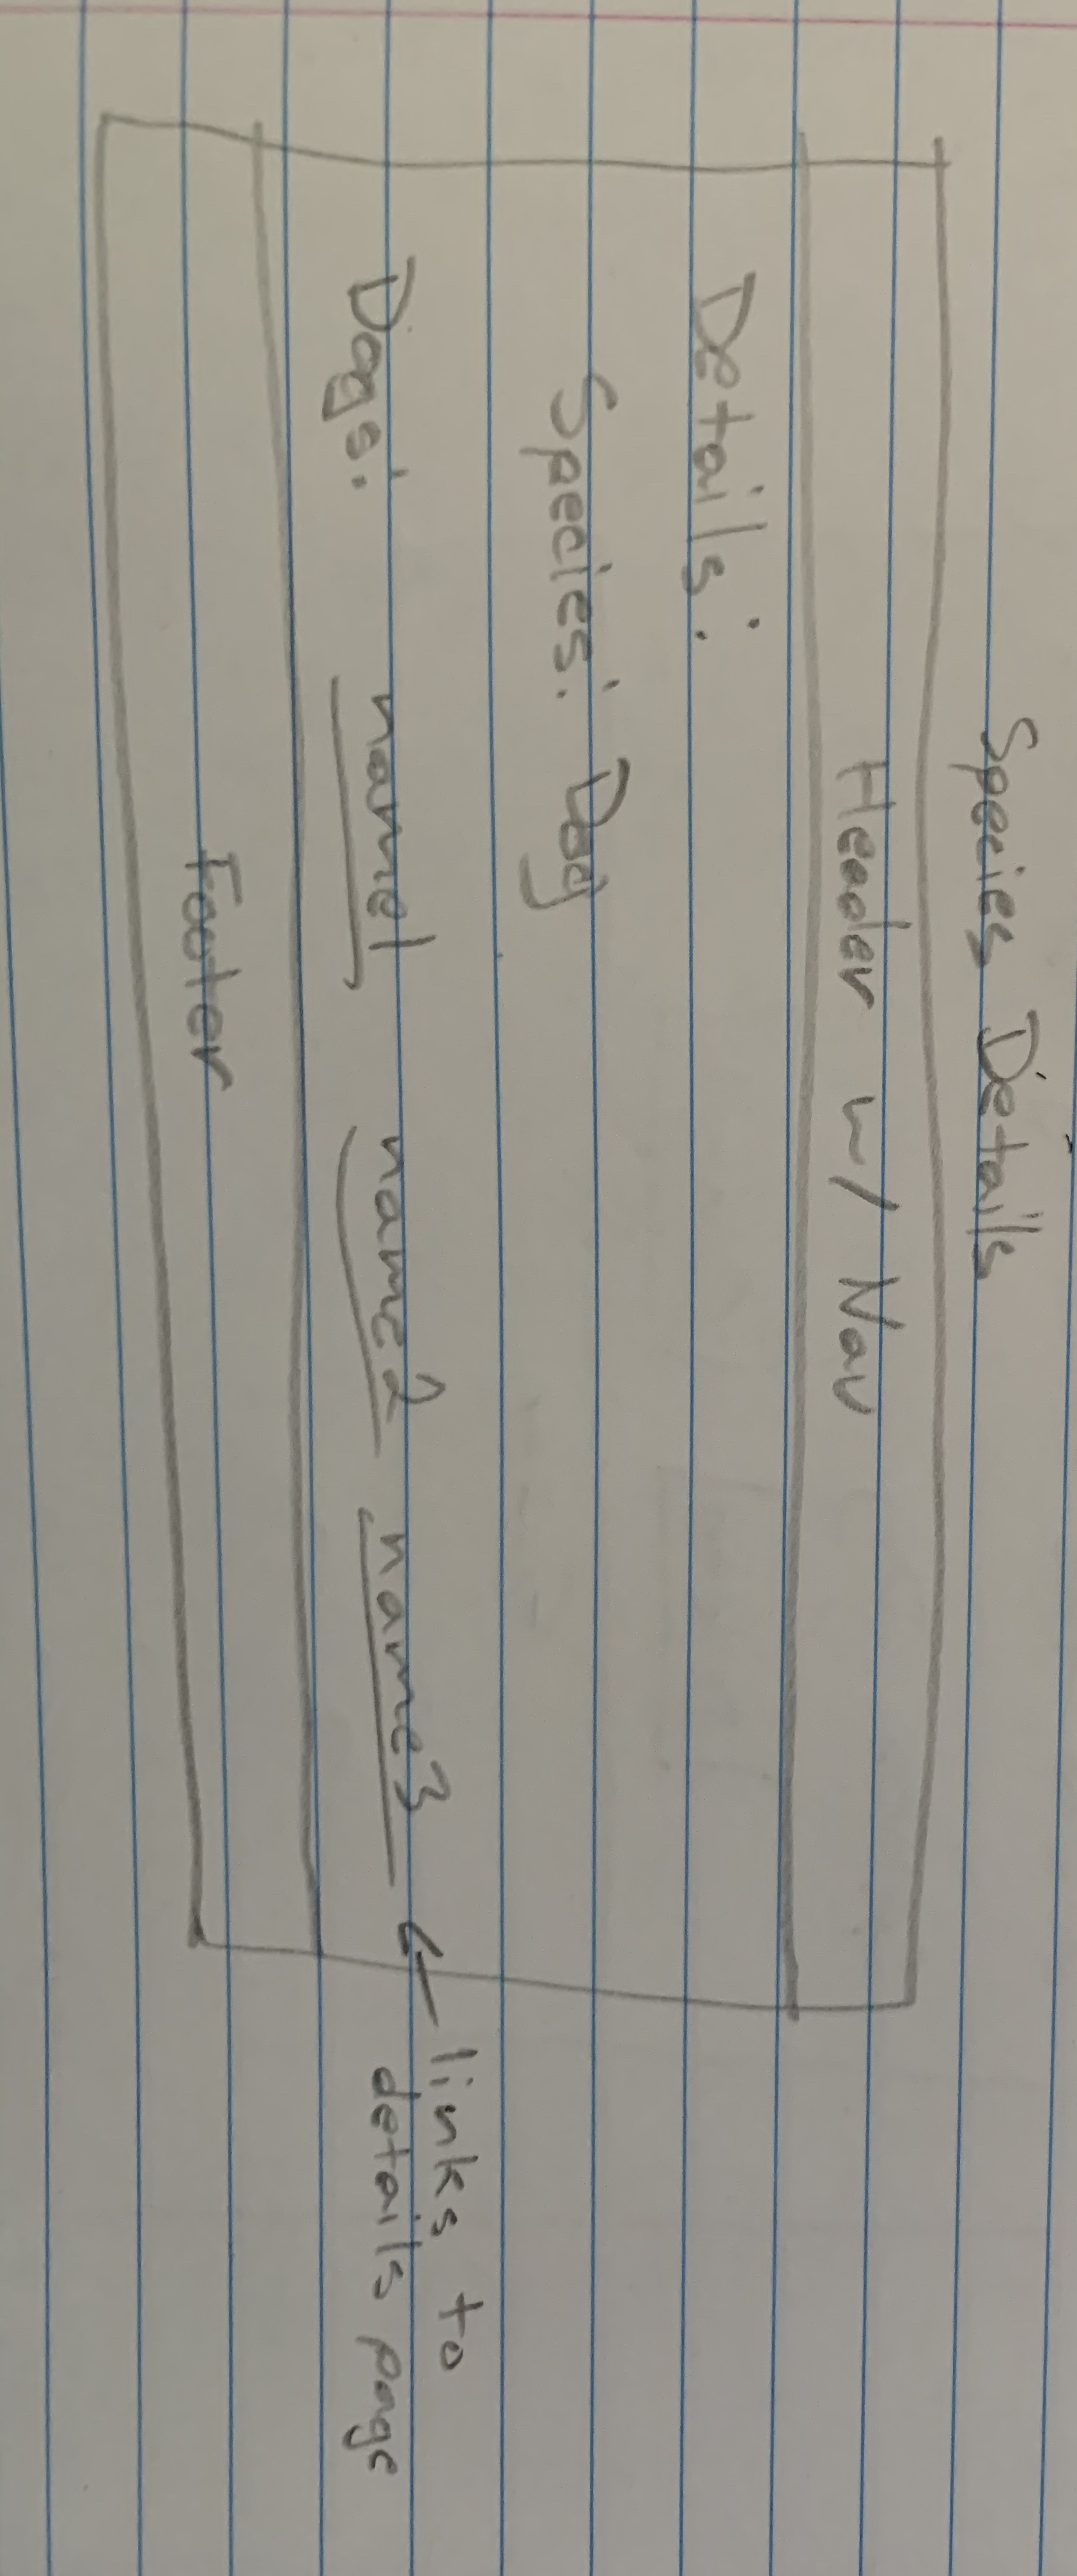 Species Details
Header w/ Nav
Details:
Species: Dog
Dogs: name1 name2 name3 ← links to
details page
Footer